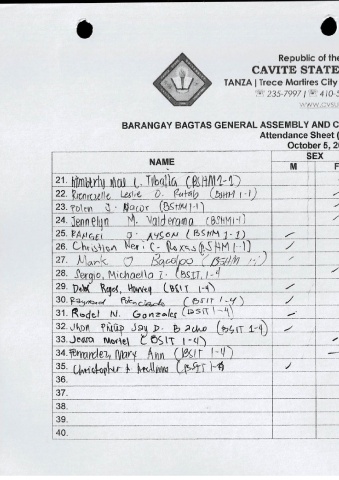 Republic of the
CAVITE STATE
TANZA | Trece Martires City
☏ 235-7997 | ☏ 410-5
www.cvsu
BARANGAY BAGTAS GENERAL ASSEMBLY AND C
Attendance Sheet (
October 5, 20
NAME SEX
M F
21. Kimberly Mae (BSHM 1-1)
22. Leslie O. (BSHM 1-1)
23. J. (BSHM 1-1)
24. Jennelyn M. Valderama (BSHM 1-1)
25. RANGEL J. AYSON (BSHM 1-1)
26. Christian Neri C. Roxas (BSHM 1-1)
27. Mark (BSHM
28. Sergio, Michaella (BSIT, 1-4
29. Harvey (BSIT 1-4)
30. Raymond (BSIT 1-4)
31. Rodel N. Gonzales (BSIT 1-4)
32. Jhon Philip Jay D. (BSIT 1-4)
33. Mariel (BSIT 1-4)
34. Fernandez, Mary Ann (BSIT 1-4)
35. Christopher Arellano (BSIT 1-4)
36.
37.
38.
39.
40.